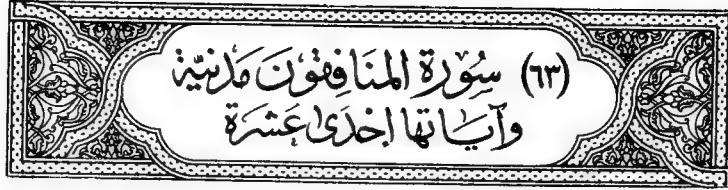 (٦٣) سُورَة المنَافِقونَ مَدنيَّة
وآيَاتها احْدَى عَشَرة